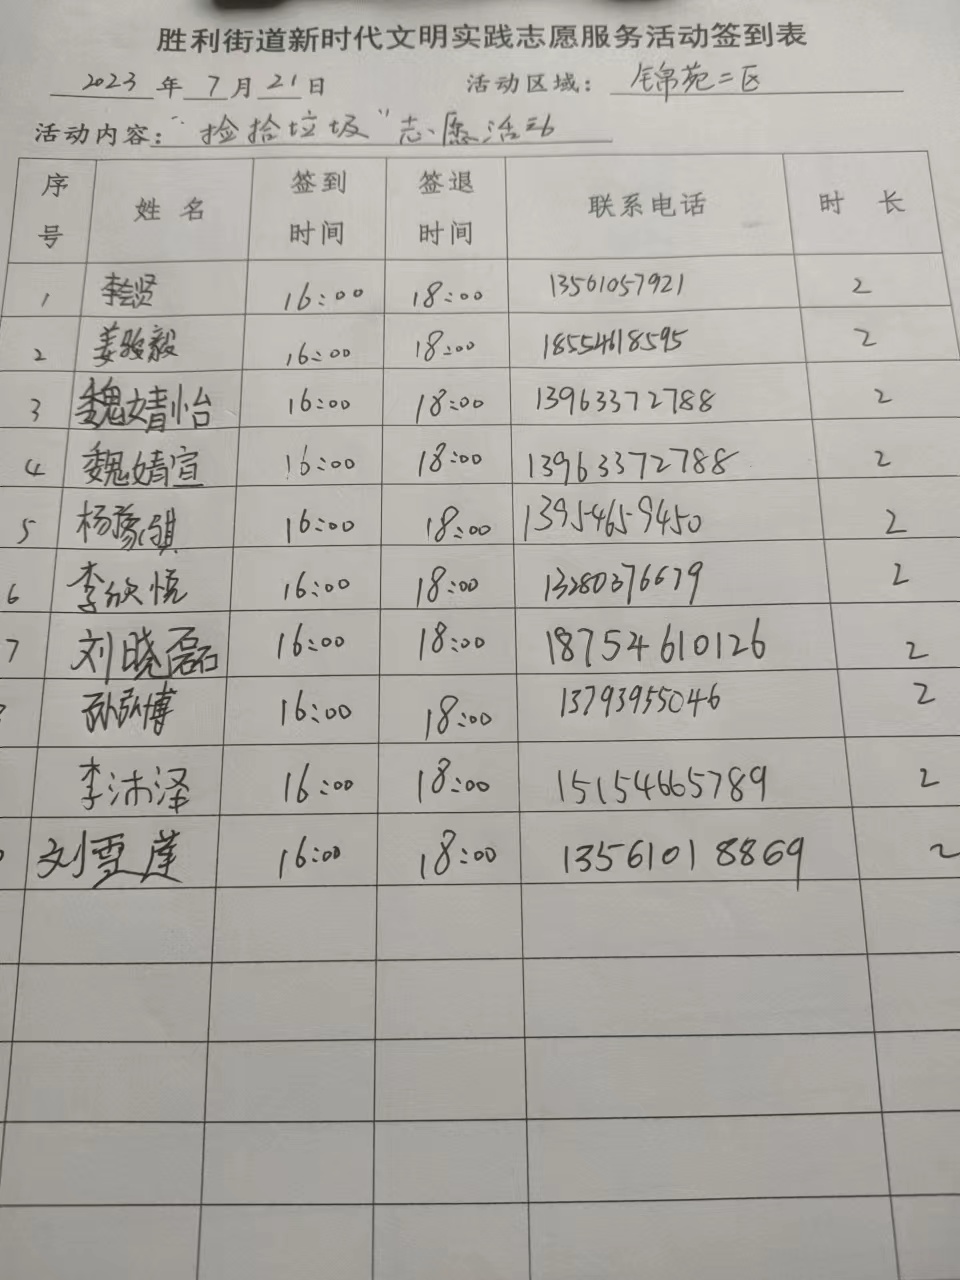 胜利街道新时代文明实践志愿服务活动签到表
2023 年 7 月 21 日 活动区域： 锦苑二区
活动内容： “捡拾垃圾”志愿活动
序号 姓名 签到时间 签退时间 联系电话 时长
1 李会贤 16:00 18:00 13561057921 2
2 姜骁毅 16:00 18:00 18554618595 2
3 魏婧怡 16:00 18:00 13963372788 2
4 魏婧宣 16:00 18:00 13963372788 2
5 杨豫琪 16:00 18:00 13954659450 2
6 李欣悦 16:00 18:00 13280376679 2
7 刘晓磊 16:00 18:00 18754610126 2
孙弘博 16:00 18:00 13793955046 2
李沛泽 16:00 18:00 15154665789 2
刘雪莲 16:00 18:00 13561018869 2